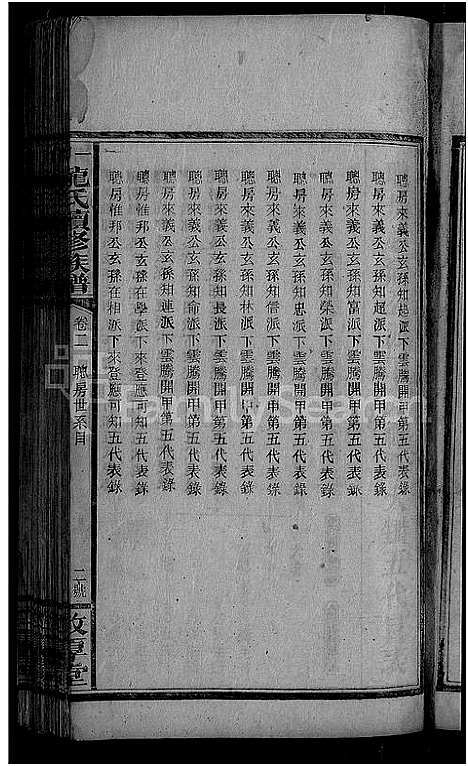 聰房來義公玄孫知起派下雲騰開甲第五代表錄
聰房來義公玄孫知超派下雲騰開甲第五代表錄
聰房來義公玄孫知富派下雲騰開甲第五代表錄
聰房來義公玄孫知榮派下雲騰開甲第五代表錄
聰房來義公玄孫知忠派下雲騰開甲第五代表錄
聰房來義公玄孫知信派下雲騰開甲第五代表錄
聰房來義公玄孫知林派下雲騰開甲第五代表錄
聰房來義公玄孫知長派下雲騰開甲第五代表錄
聰房來義公玄孫知命派下雲騰開甲第五代表錄
聰房來義公玄孫知連派下雲騰開甲第五代表錄
聰房惟邦丕玄孫在學派下來登應可知五代表錄
聰房惟邦丕玄孫在相派下來登應可知五代表錄
氏續修族譜
卷二
聰房世系目
二號
敦厚堂
FamilySearch